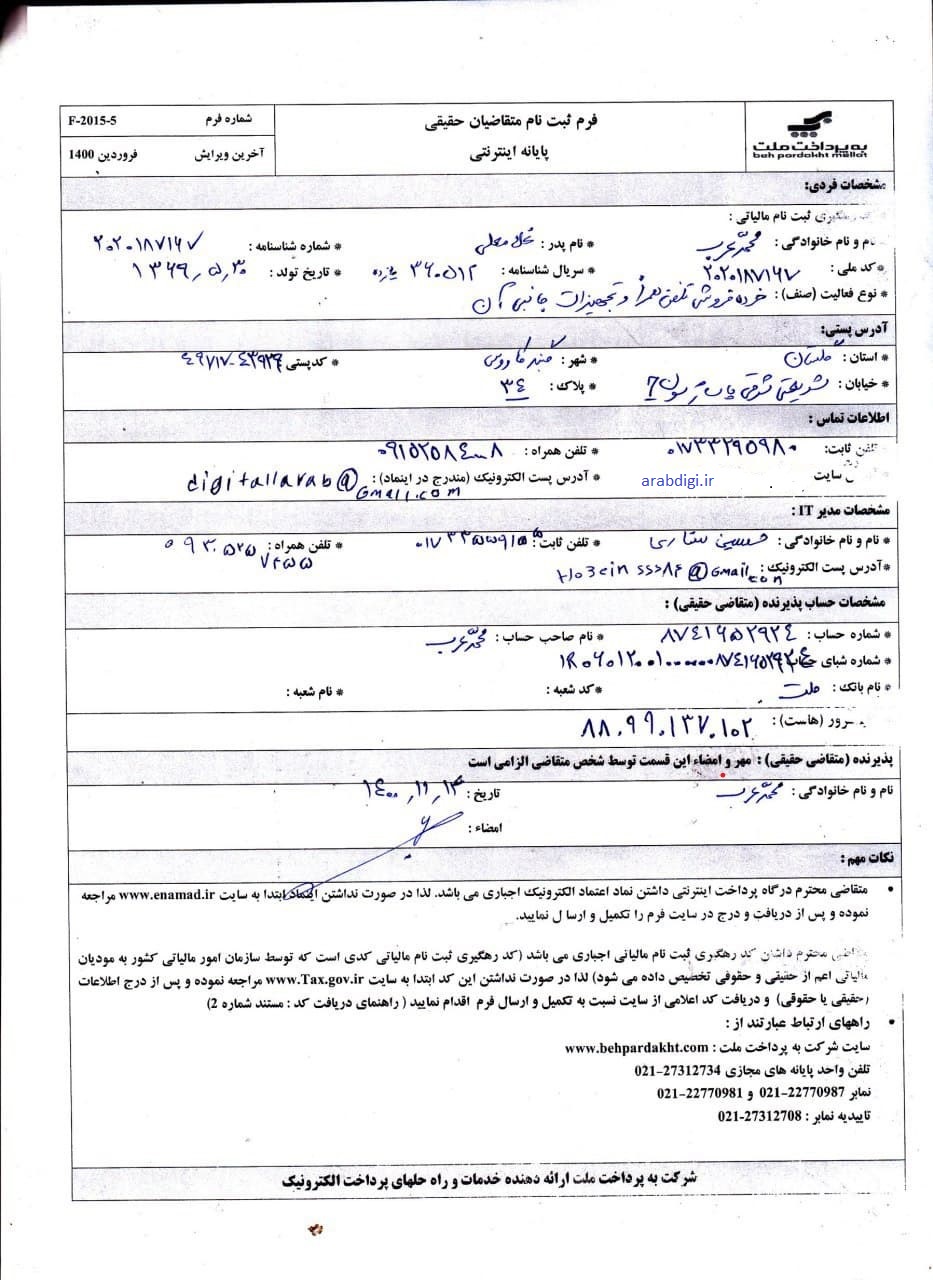 به پرداخت ملت
beh pardakht mellat
فرم ثبت نام متقاضیان حقیقی
پایانه اینترنتی
شماره فرم F-2015-5
آخرین ویرایش فروردین 1400
مشخصات فردی:
رهگیری ثبت نام مالیاتی :
نام و نام خانوادگی : محمد عرب * نام پدر : غلامعلی * شماره شناسنامه : ۲۰۲۰۱۸۷۱۶۷
* کد ملی : ۲۰۲۰۱۸۷۱۶۷ * سریال شناسنامه : ۳۶۰۵۱۲ * تاریخ تولد : ۱۳۶۹٫۵٫۳۰
* نوع فعالیت (صنف) : خرده فروشی تلفن همراه و تجهیزات جانبی آن
آدرس پستی:
* استان : گلستان * شهر : گنبد کاووس * کدپستی ۴۹۷۱۷-۴۳۹۳۴
* خیابان : شریعتی شرقی * پلاک : ۳۴
اطلاعات تماس :
تلفن ثابت: ۰۱۷۳۳۲۹۵۹۸۰ * تلفن همراه :
سایت arabdigi.ir * آدرس پست الکترونیک (مندرج در اینماد) : digitallarab@
Gmail.com
مشخصات مدیر IT :
* نام و نام خانوادگی : حسین ستاری * تلفن ثابت: * تلفن همراه : ۰۹۳۰۵۲۵
۷۲۵۵
*آدرس پست الکترونیک : @Gmail.com
مشخصات حساب پذیرنده (متقاضی حقیقی) :
* شماره حساب : ۸۷۴۱۶۵۲۹۲۴ * نام صاحب حساب : محمد عرب
* شماره شبای حساب
* نام بانک : ملت * کد شعبه : * نام شعبه :
سرور (هاست) : ۸۸.۹۹.۱۳۷.۱۰۲
پذیرنده (متقاضی حقیقی) : مهر و امضاء این قسمت توسط شخص متقاضی الزامی است
نام و نام خانوادگی : محمد عرب تاریخ : ۱۴۰۰٫۱۱٫۱۳
امضاء :
نکات مهم :
• متقاضی محترم درگاه پرداخت اینترنتی داشتن نماد اعتماد الکترونیک اجباری می باشد. لذا در صورت نداشتن اینماد ابتدا به سایت www.enamad.ir مراجعه
نموده و پس از دریافت و درج در سایت فرم را تکمیل و ارسال نمایید.
متقاضی محترم داشتن کد رهگیری ثبت نام مالیاتی اجباری می باشد (کد رهگیری ثبت نام مالیاتی کدی است که توسط سازمان امور مالیاتی کشور به مودیان
مالیاتی اعم از حقیقی و حقوقی تخصیص داده می شود) لذا در صورت نداشتن این کد ابتدا به سایت www.Tax.gov.ir مراجعه نموده و پس از درج اطلاعات
(حقیقی یا حقوقی) و دریافت کد اعلامی از سایت نسبت به تکمیل و ارسال فرم اقدام نمایید ( راهنمای دریافت کد : مستند شماره 2)
• راههای ارتباط عبارتند از :
سایت شرکت به پرداخت ملت : www.behpardakht.com
تلفن واحد پایانه های مجازی 27312734-021
نمابر 22770987-021 و 22770981-021
تاییدیه نمابر : 27312708-021
شرکت به پرداخت ملت ارائه دهنده خدمات و راه حلهای پرداخت الکترونیک